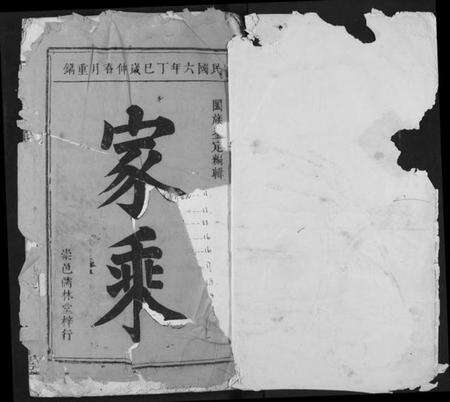 民國六年丁巳歲仲春月重鐫
闔族㒰定編輯
家乘
崇邑儒林堂梓行